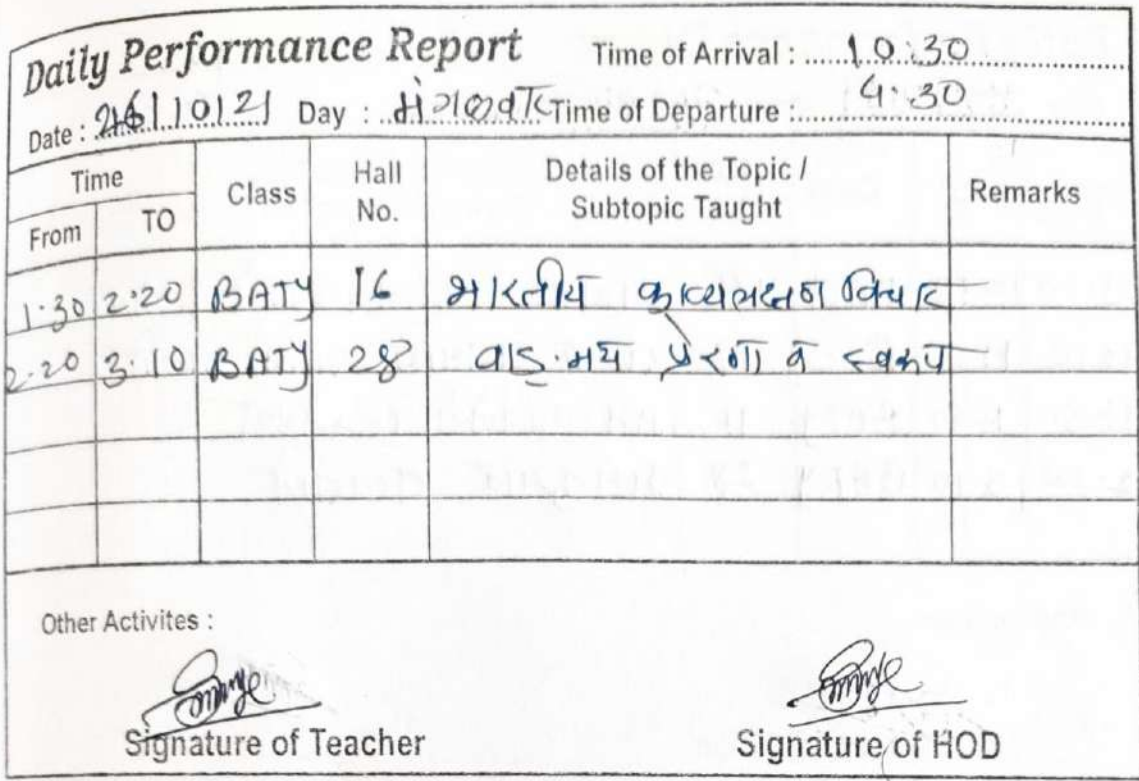 Daily Performance Report Time of Arrival : 10:30
Date : 26/10/21 Day : मंगळवार Time of Departure : 4:30
Time Class Hall No. Details of the Topic / Subtopic Taught Remarks
From TO
1:30 2:20 BATY 16 भारतीय काव्यलक्षण विचार
2:20 3:10 BATY 28 वाङ्मय प्रेरणा व स्वरूप
Other Activites :
Signature of Teacher Signature of HOD